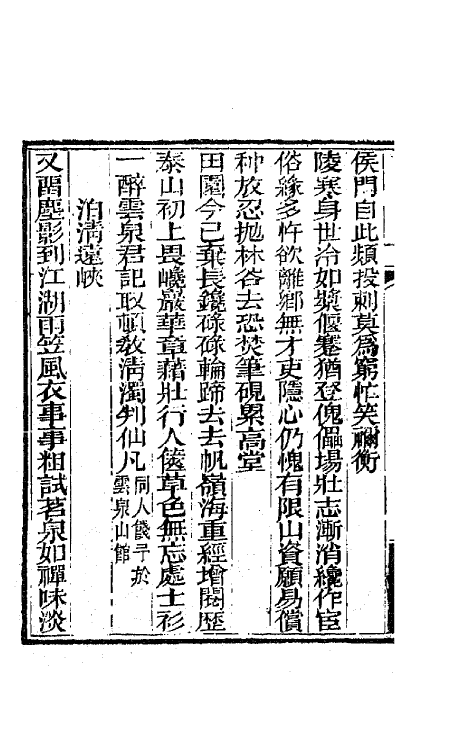 侯門自此類投刺莫為窮忙笑禰衡
陵寒身世冷如漿偃蹇猶登傀儡場壯志漸消纔作宦
俗緣多忤欲離鄉無才吏隱心仍愧有限山資願易償
种放忍拋林谷去恐焚筆硯累高堂
田園今已棄長鑱碌碌輪蹄去去帆嶺海重經增閱歷
泰山初上畏巉巖華章藉壯行人篋草色無忘處士衫
一醉雲泉君記取頓教淸濁判仙凡同人餞予於雲泉山館
泊淸遠峽
又畱塵影到江湖雨笠風衣事事粗試茗泉如禪味淡